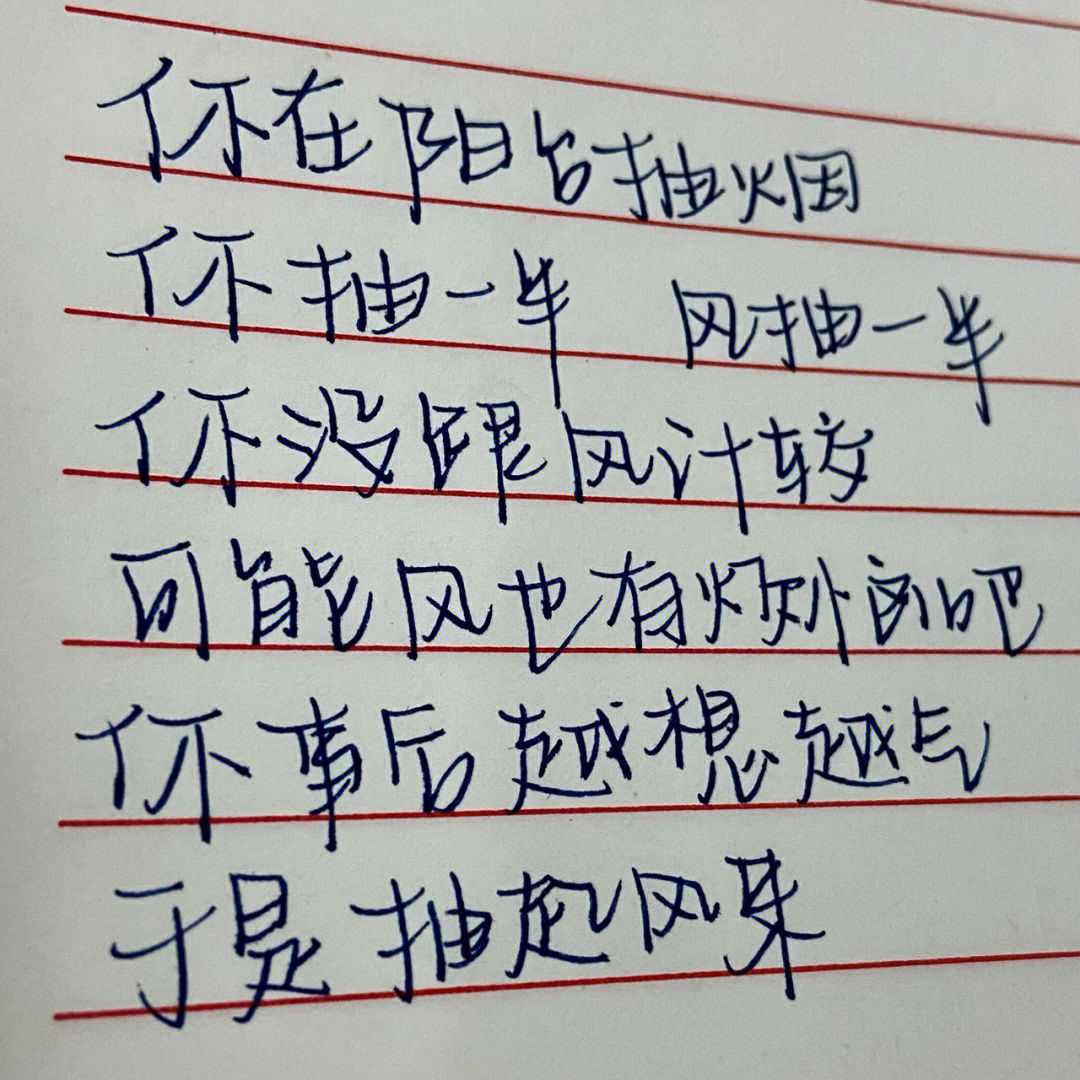 你在阳台抽烟
你抽一半 风抽一半
你没跟风计较
可能风也有烦心的吧
你事后越想越气
于是抽起风来